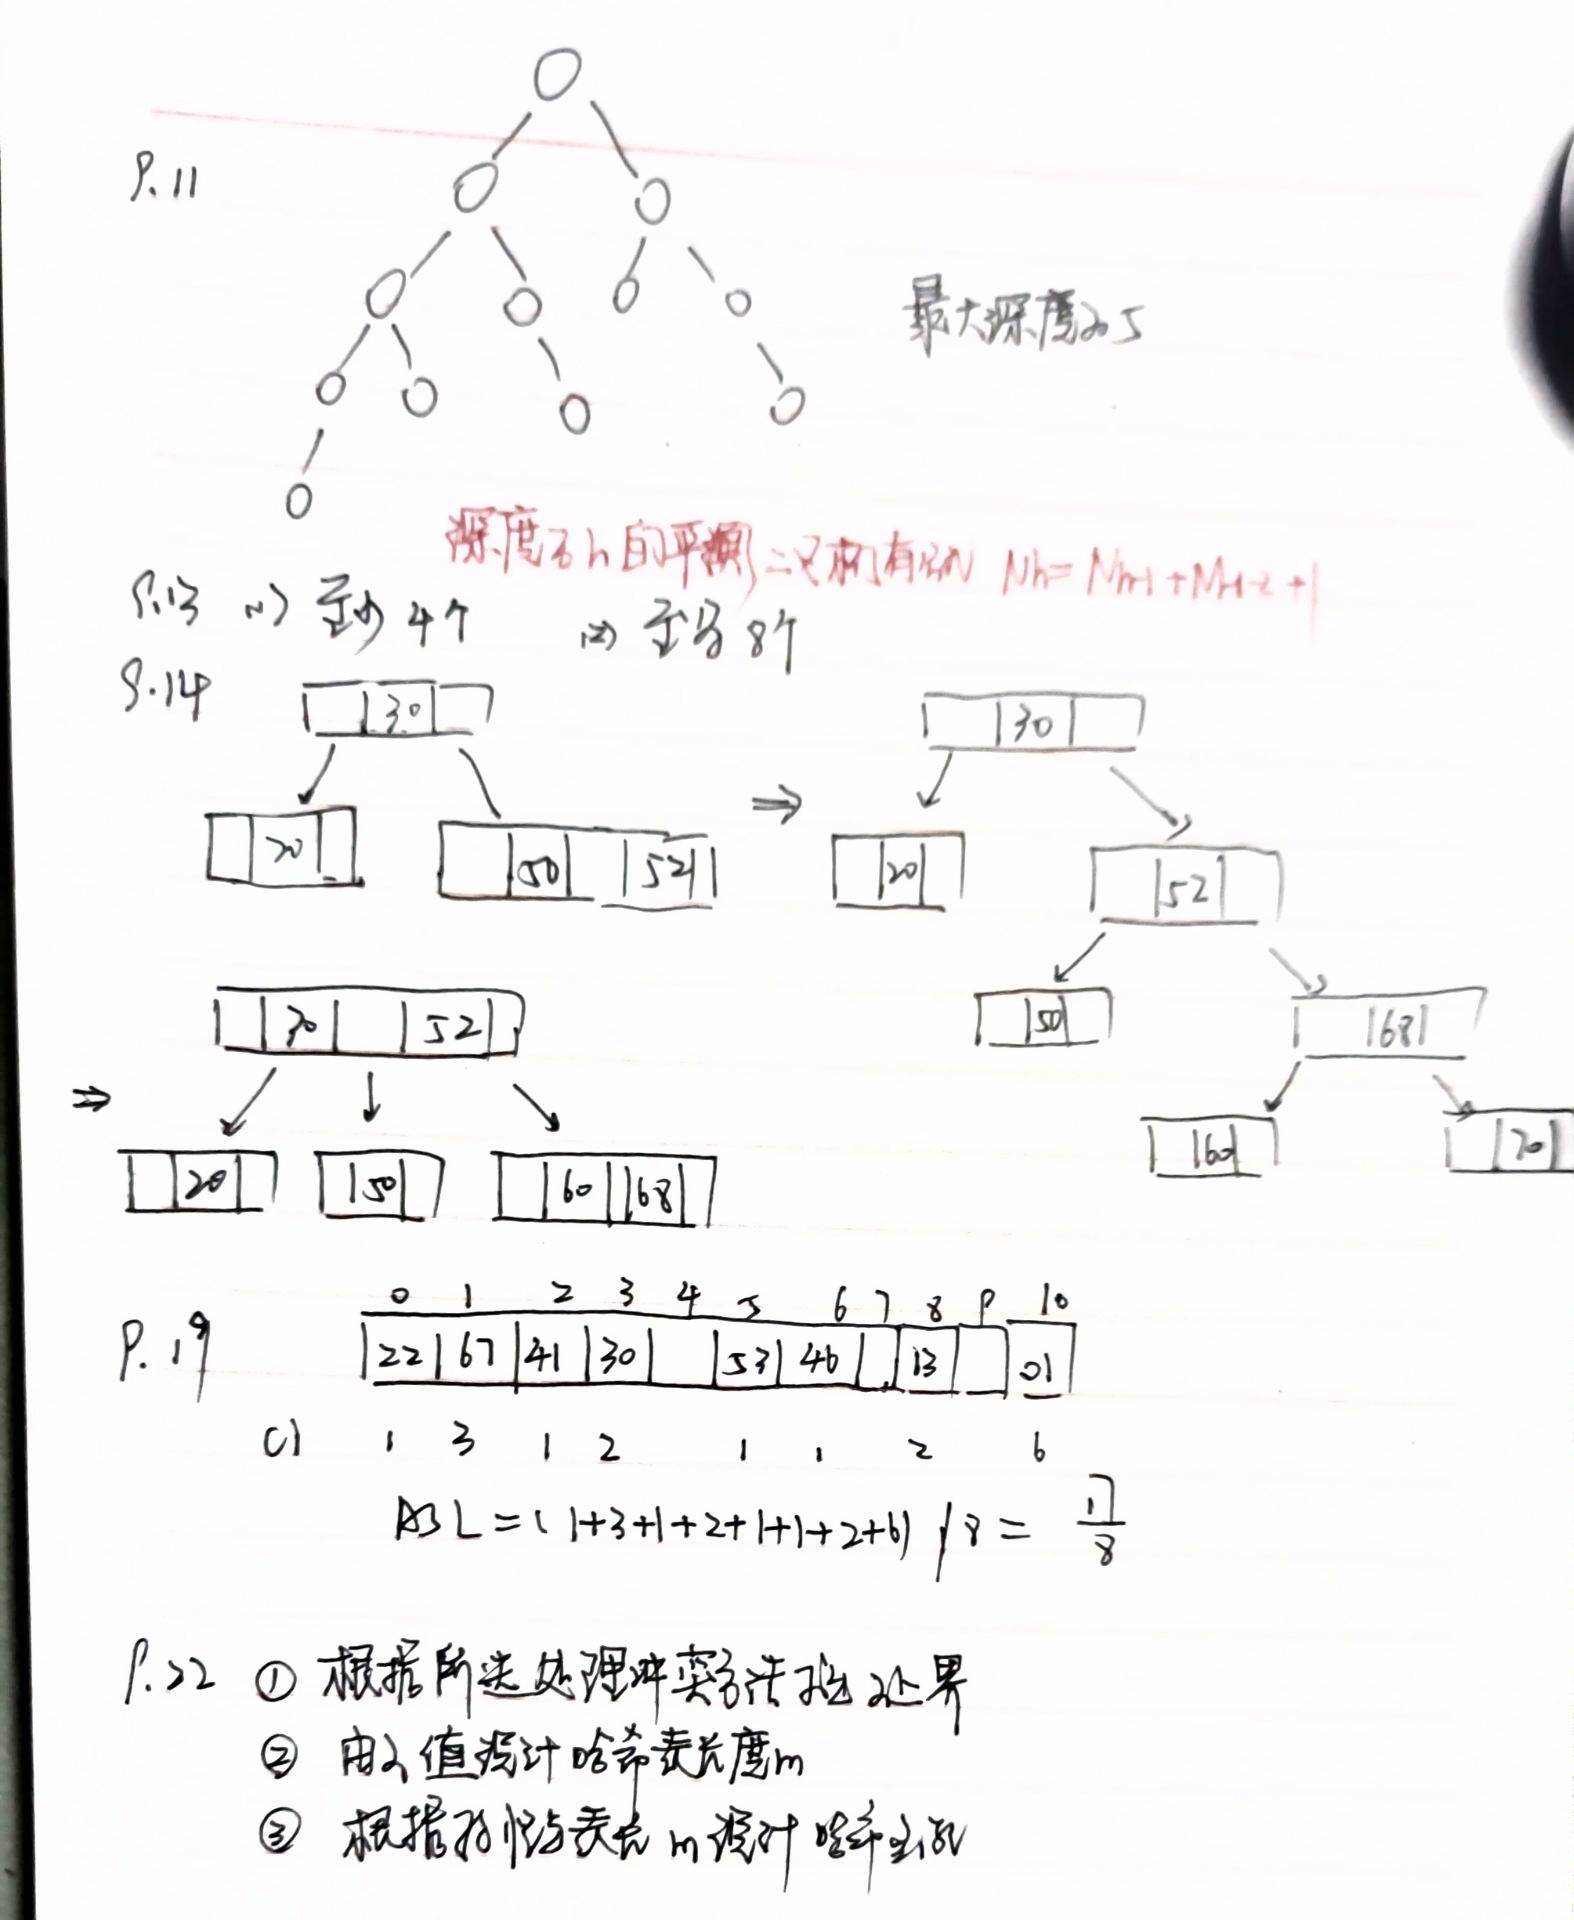 P.11
最大深度为5
深度为h的平衡二叉树有 Nh=Nh-1+Nh-2+1
P.13 (1) 至少4个 (2) 至多8个
P.14
30 30
20 50 52 ⇒ 20 52
50 68
30 52
⇒ 60 70
20 50 60 68
0 1 2 3 4 5 6 7 8 9 10
P.19 22 67 41 30 53 46 13 01
CI 1 3 1 2 1 1 2 6
ASL=(1+3+1+2+1+1+2+6)/8= 17/8
P.22 ① 根据所选处理冲突方法
② 由α值设计哈希表长度m
③ 根据 与表长m设计哈希函数